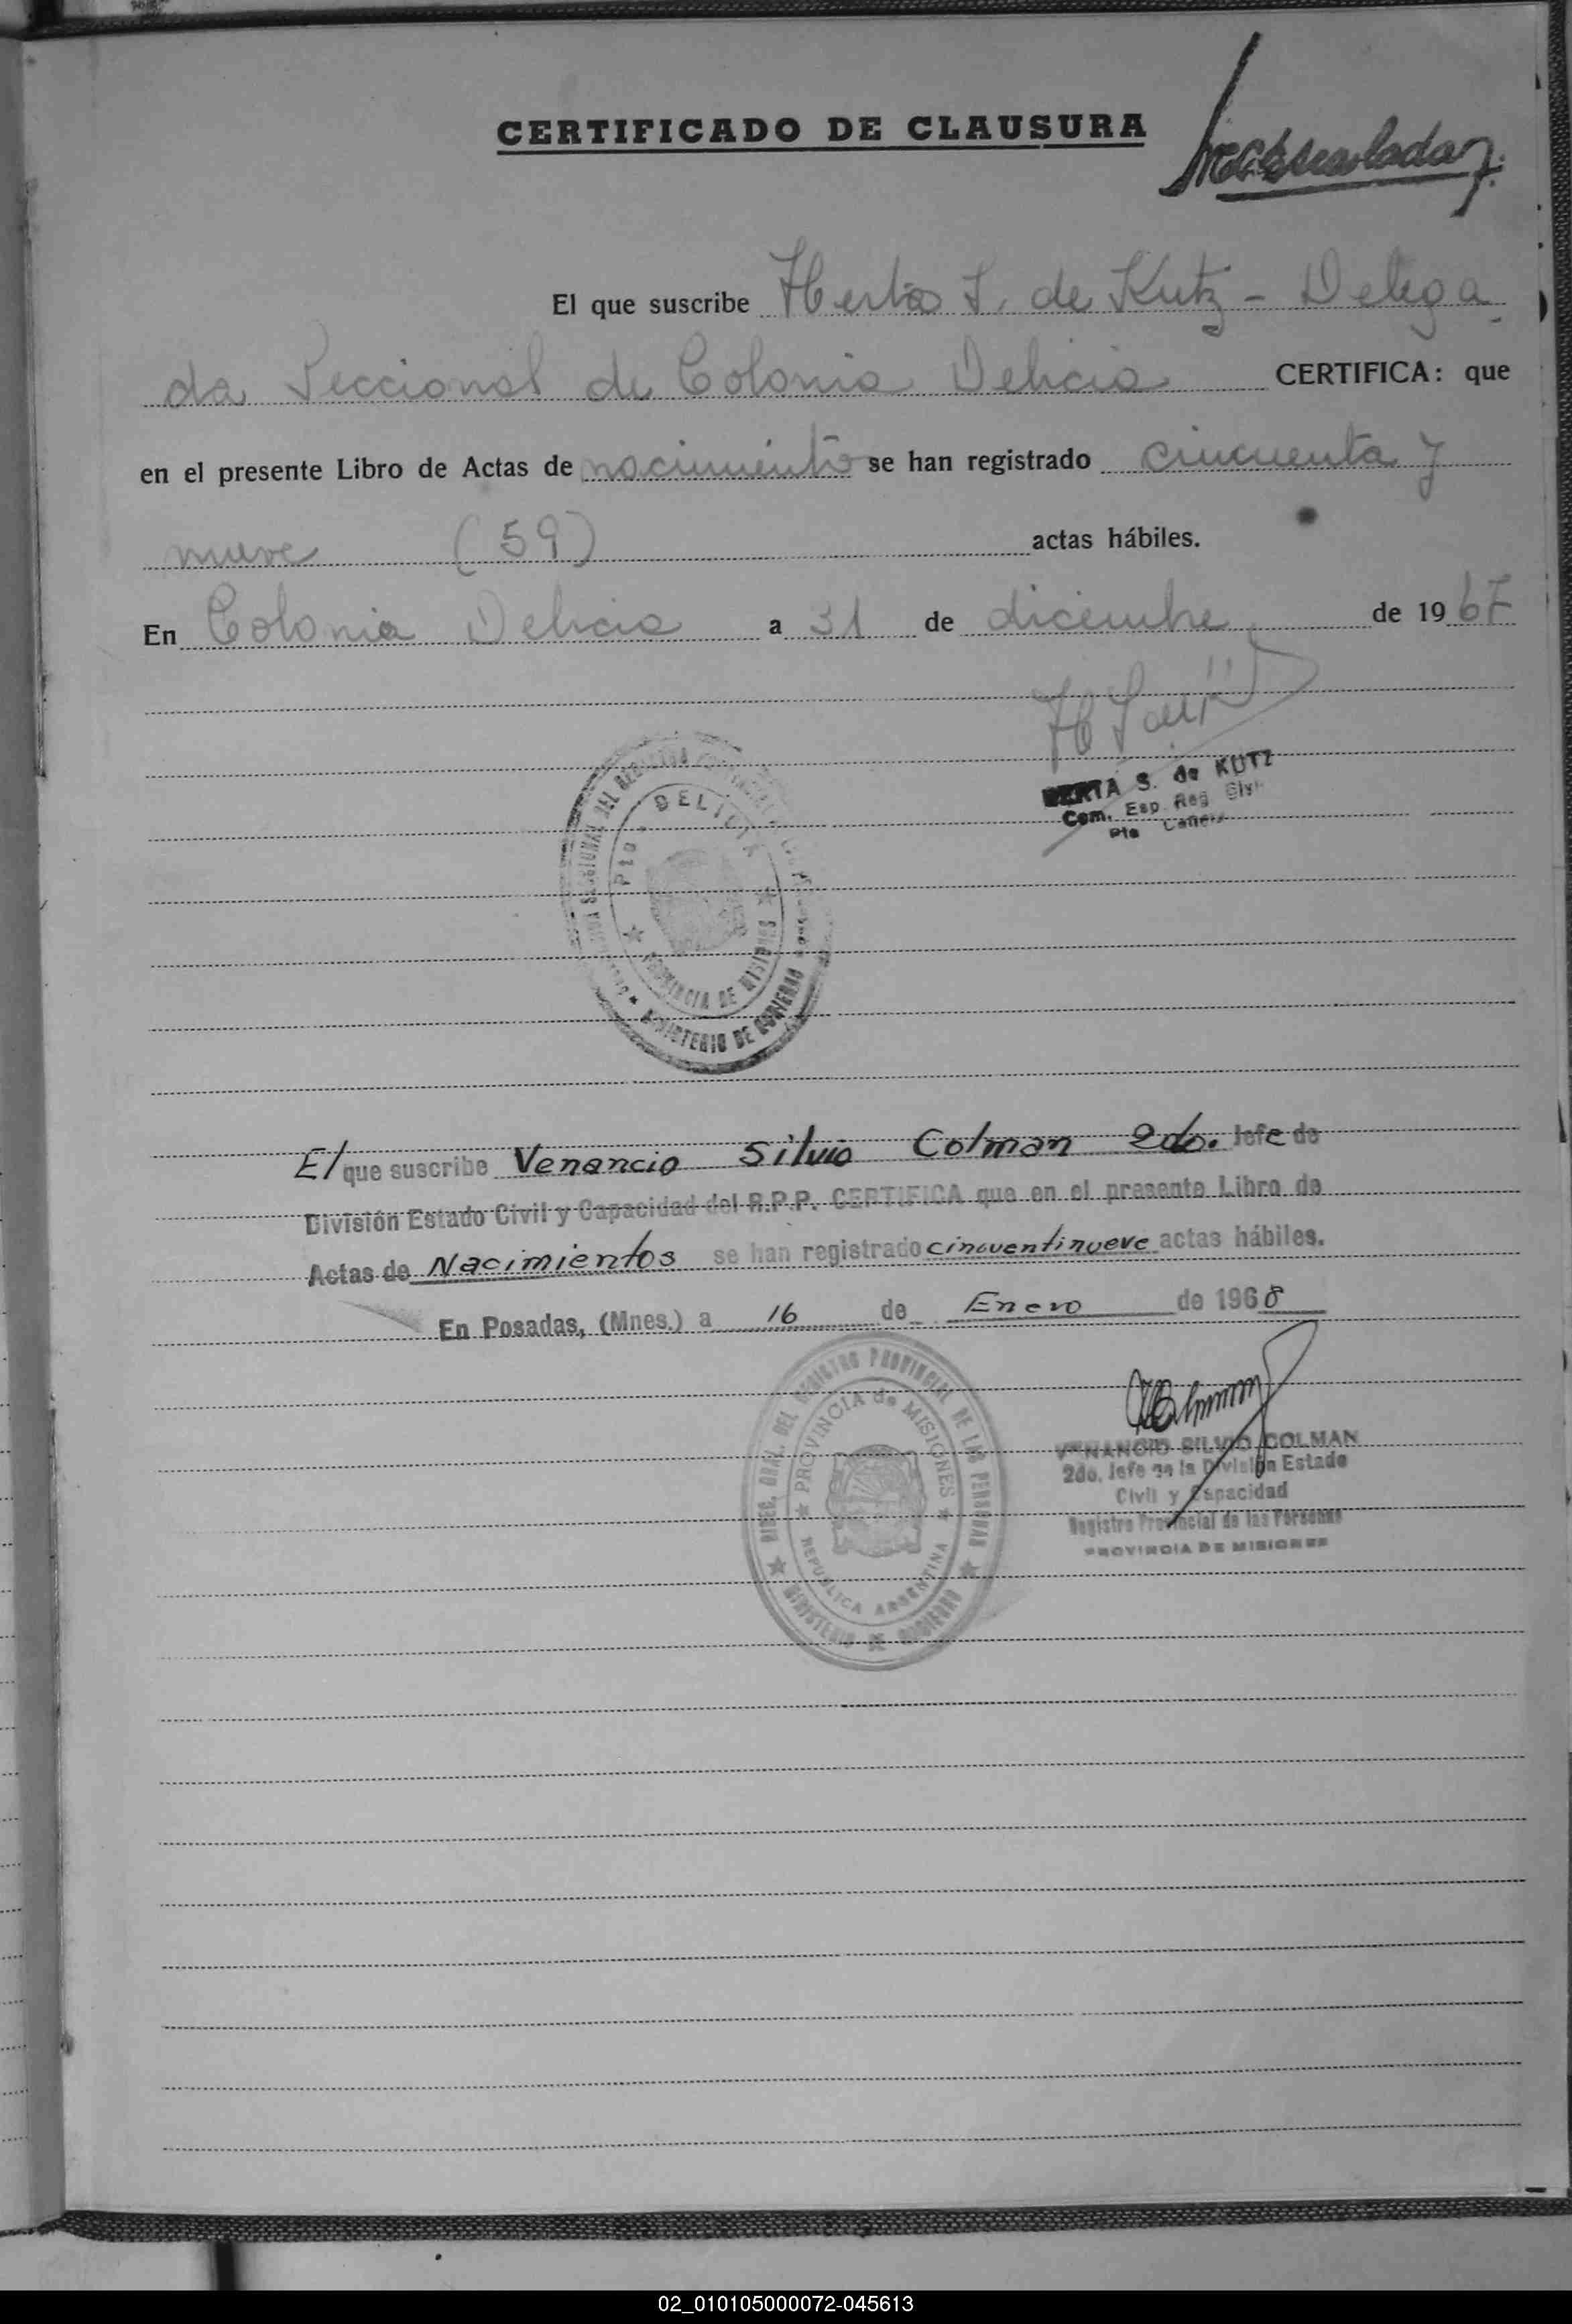 CERTIFICADO DE CLAUSURA
El que suscribe Herta S. de Kutz - Delega
da Seccional de Colonia Delicia CERTIFICA: que
en el presente Libro de Actas de nacimiento se han registrado cincuenta y
nueve (59) actas hábiles.
En Colonia Delicia a 31 de diciembre de 1967
HERTA S. de KUTZ
Com. Esp. Reg. Civil
Pto
Pto. DELICIA
PROVINCIA DE MISIONES
MINISTERIO DE GOBIERNO
El que suscribe Venancio Silvio Colman 2do. Jefe de
División Estado Civil y Capacidad del R.P.P. CERTIFICA que en el presente Libro de
Actas de Nacimientos se han registrado cincuentinueve actas hábiles.
En Posadas, (Mnes.) a 16 de Enero de 1968
DIREC. GRAL. DEL REGISTRO PROVINCIAL DE LAS PERSONAS
PROVINCIA de MISIONES
REPUBLICA ARGENTINA
MINISTERIO DE GOBIERNO
VENANCIO SILVIO COLMAN
2do. Jefe de la División Estado
Civil y Capacidad
Registro Provincial de las Personas
PROVINCIA DE MISIONES
02_010105000072-045613